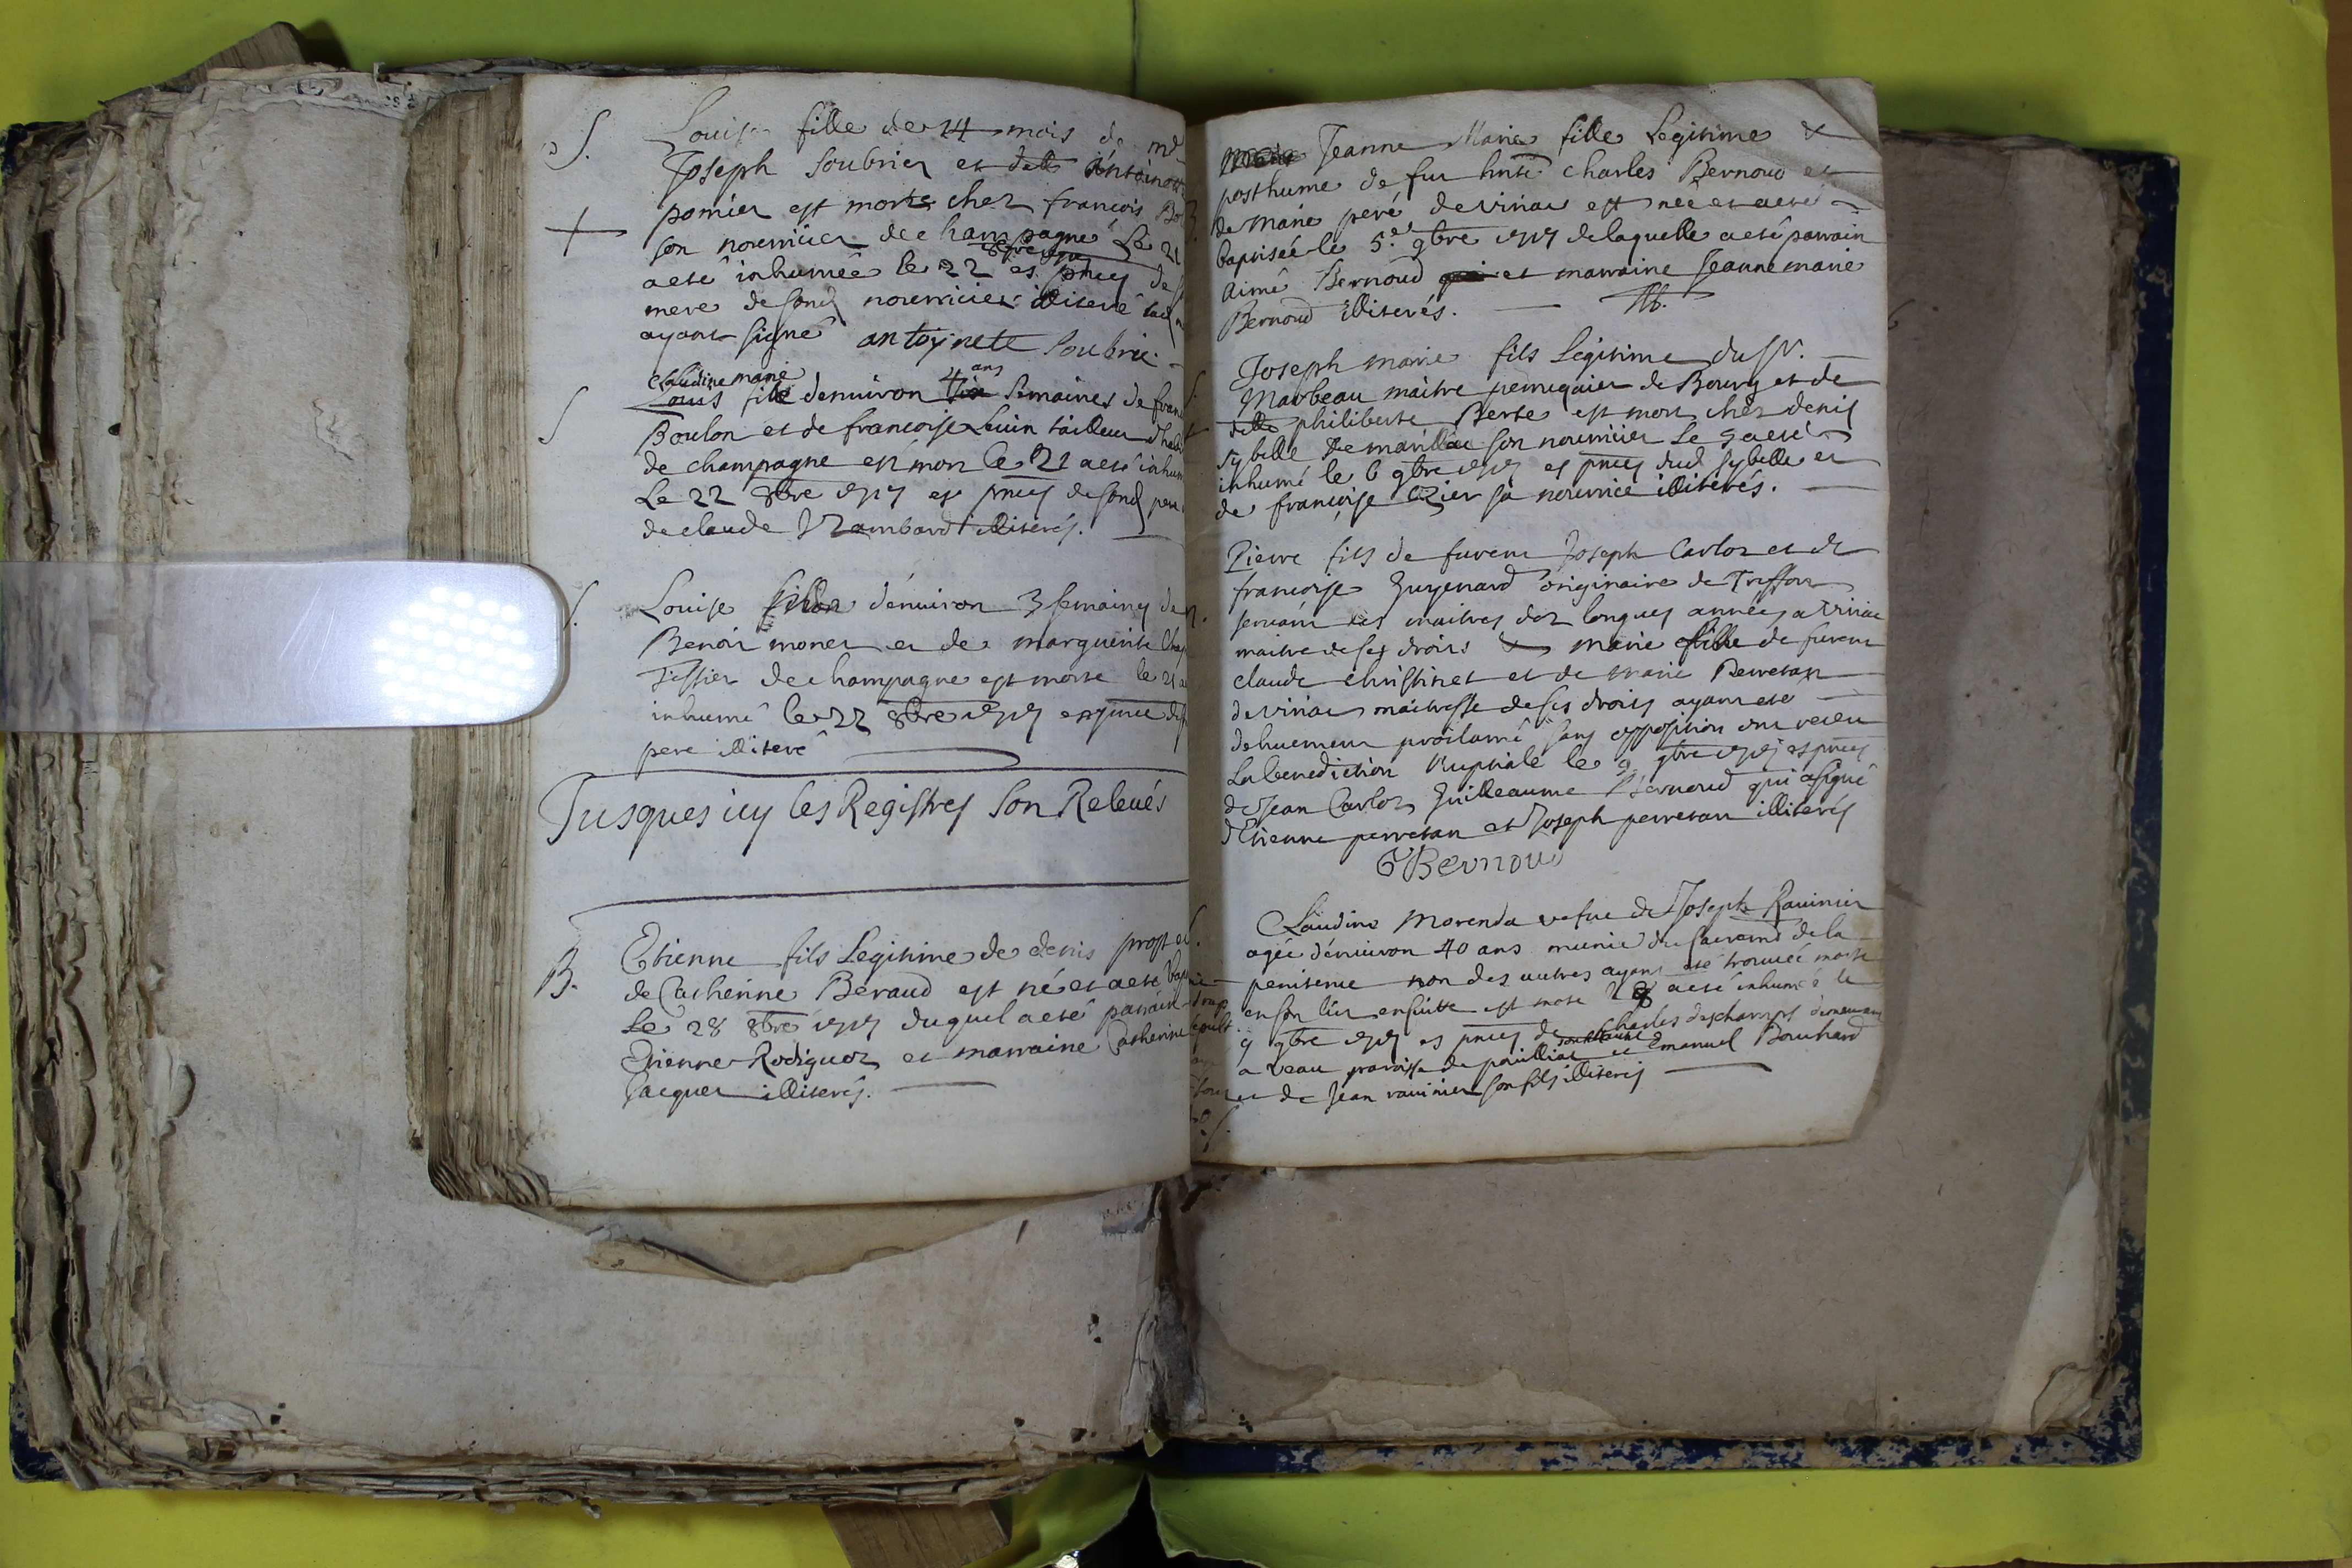 S. Louise fille de 14 mois de
Joseph Soubrier et delle Antoinette
+ pomier est morte chez francois
son nourricier de champagne Le 21
8bre
a eté inhumée le 22 es pnces de
mere de sond nourricier illiteré
ayant signé antoynete soubrie
claudine marie ans
S Louis fille denuiron 4 six semaines de
Boulon et de francoise Luin tailleur
de champagne est mort le 21 a eté
Le 22 8bre 1717 es pnces de sond pere
de claude illiterés.
S. Louise fille dénuiron 3 semaines de
Benoit monet et de marguerite
Tissier de champagne est morte le 21
inhumé le 22 8bre 1717 es pnce
pere illiteré
Jusques icy les Registres son Releués
B. Etienne fils Legitime de denis prost et
de Catherine Béraud est né et a eté
Le 28 8bre 1717 duquel a eté parrain
Etienne Rodiguet et marraine Catherine
Jacquet illiterés.
Jeanne Marie fille Legitime &
posthume de fut hnte charles Bernoud et
de Marie peré de viriat est née et a eté
baptisée le 5e 9bre 1717 de laquelle a eté parrain
Aimé Bernoud et marraine Jeanne marie
Bernoud illiterés.
Joseph marie fils Legitime du Sr.
Marbeau maitre peruquier de Bourg et de
delle philiberte Berte est mort chez denis
sybelle de marillia son nourricier Le 5 a eté
inhumé le 6 9bre 1717 es pnces dud sybelle et
de françoise sa nourrice illiterés.
Pierre fils de furent Joseph Carloz et de
francoise Guyenard originaire de Treffort
seruant les maitres dez longues années a viriat
maitre de ses droits & marie fille de furent
claude christinet et de marie Perretan
de viriat maitresse de ses droits ayant eté
dehuement proclamé sans opposition ont receu
La benediction Nuptiale le 9 9bre 1717 es pnces
de Jean Carloz Guilleaume Bernoud qui a signé
d'Etienne perretan et Joseph perretan illiterés
G Bernoud
Claudine Morenda vefue de Joseph Rauinier
agée dénuiron 40 ans munie du sacremt de la
penitence non des autres ayant eté trouuée morte
en son lit ensuitte est morte L 8 a eté inhumée le
9 9bre 1717 es pnces de charles deschamps demeurant
a Leau paroisse de et Emanuel Bouchard
et de Jean rauinier son fils illiterés